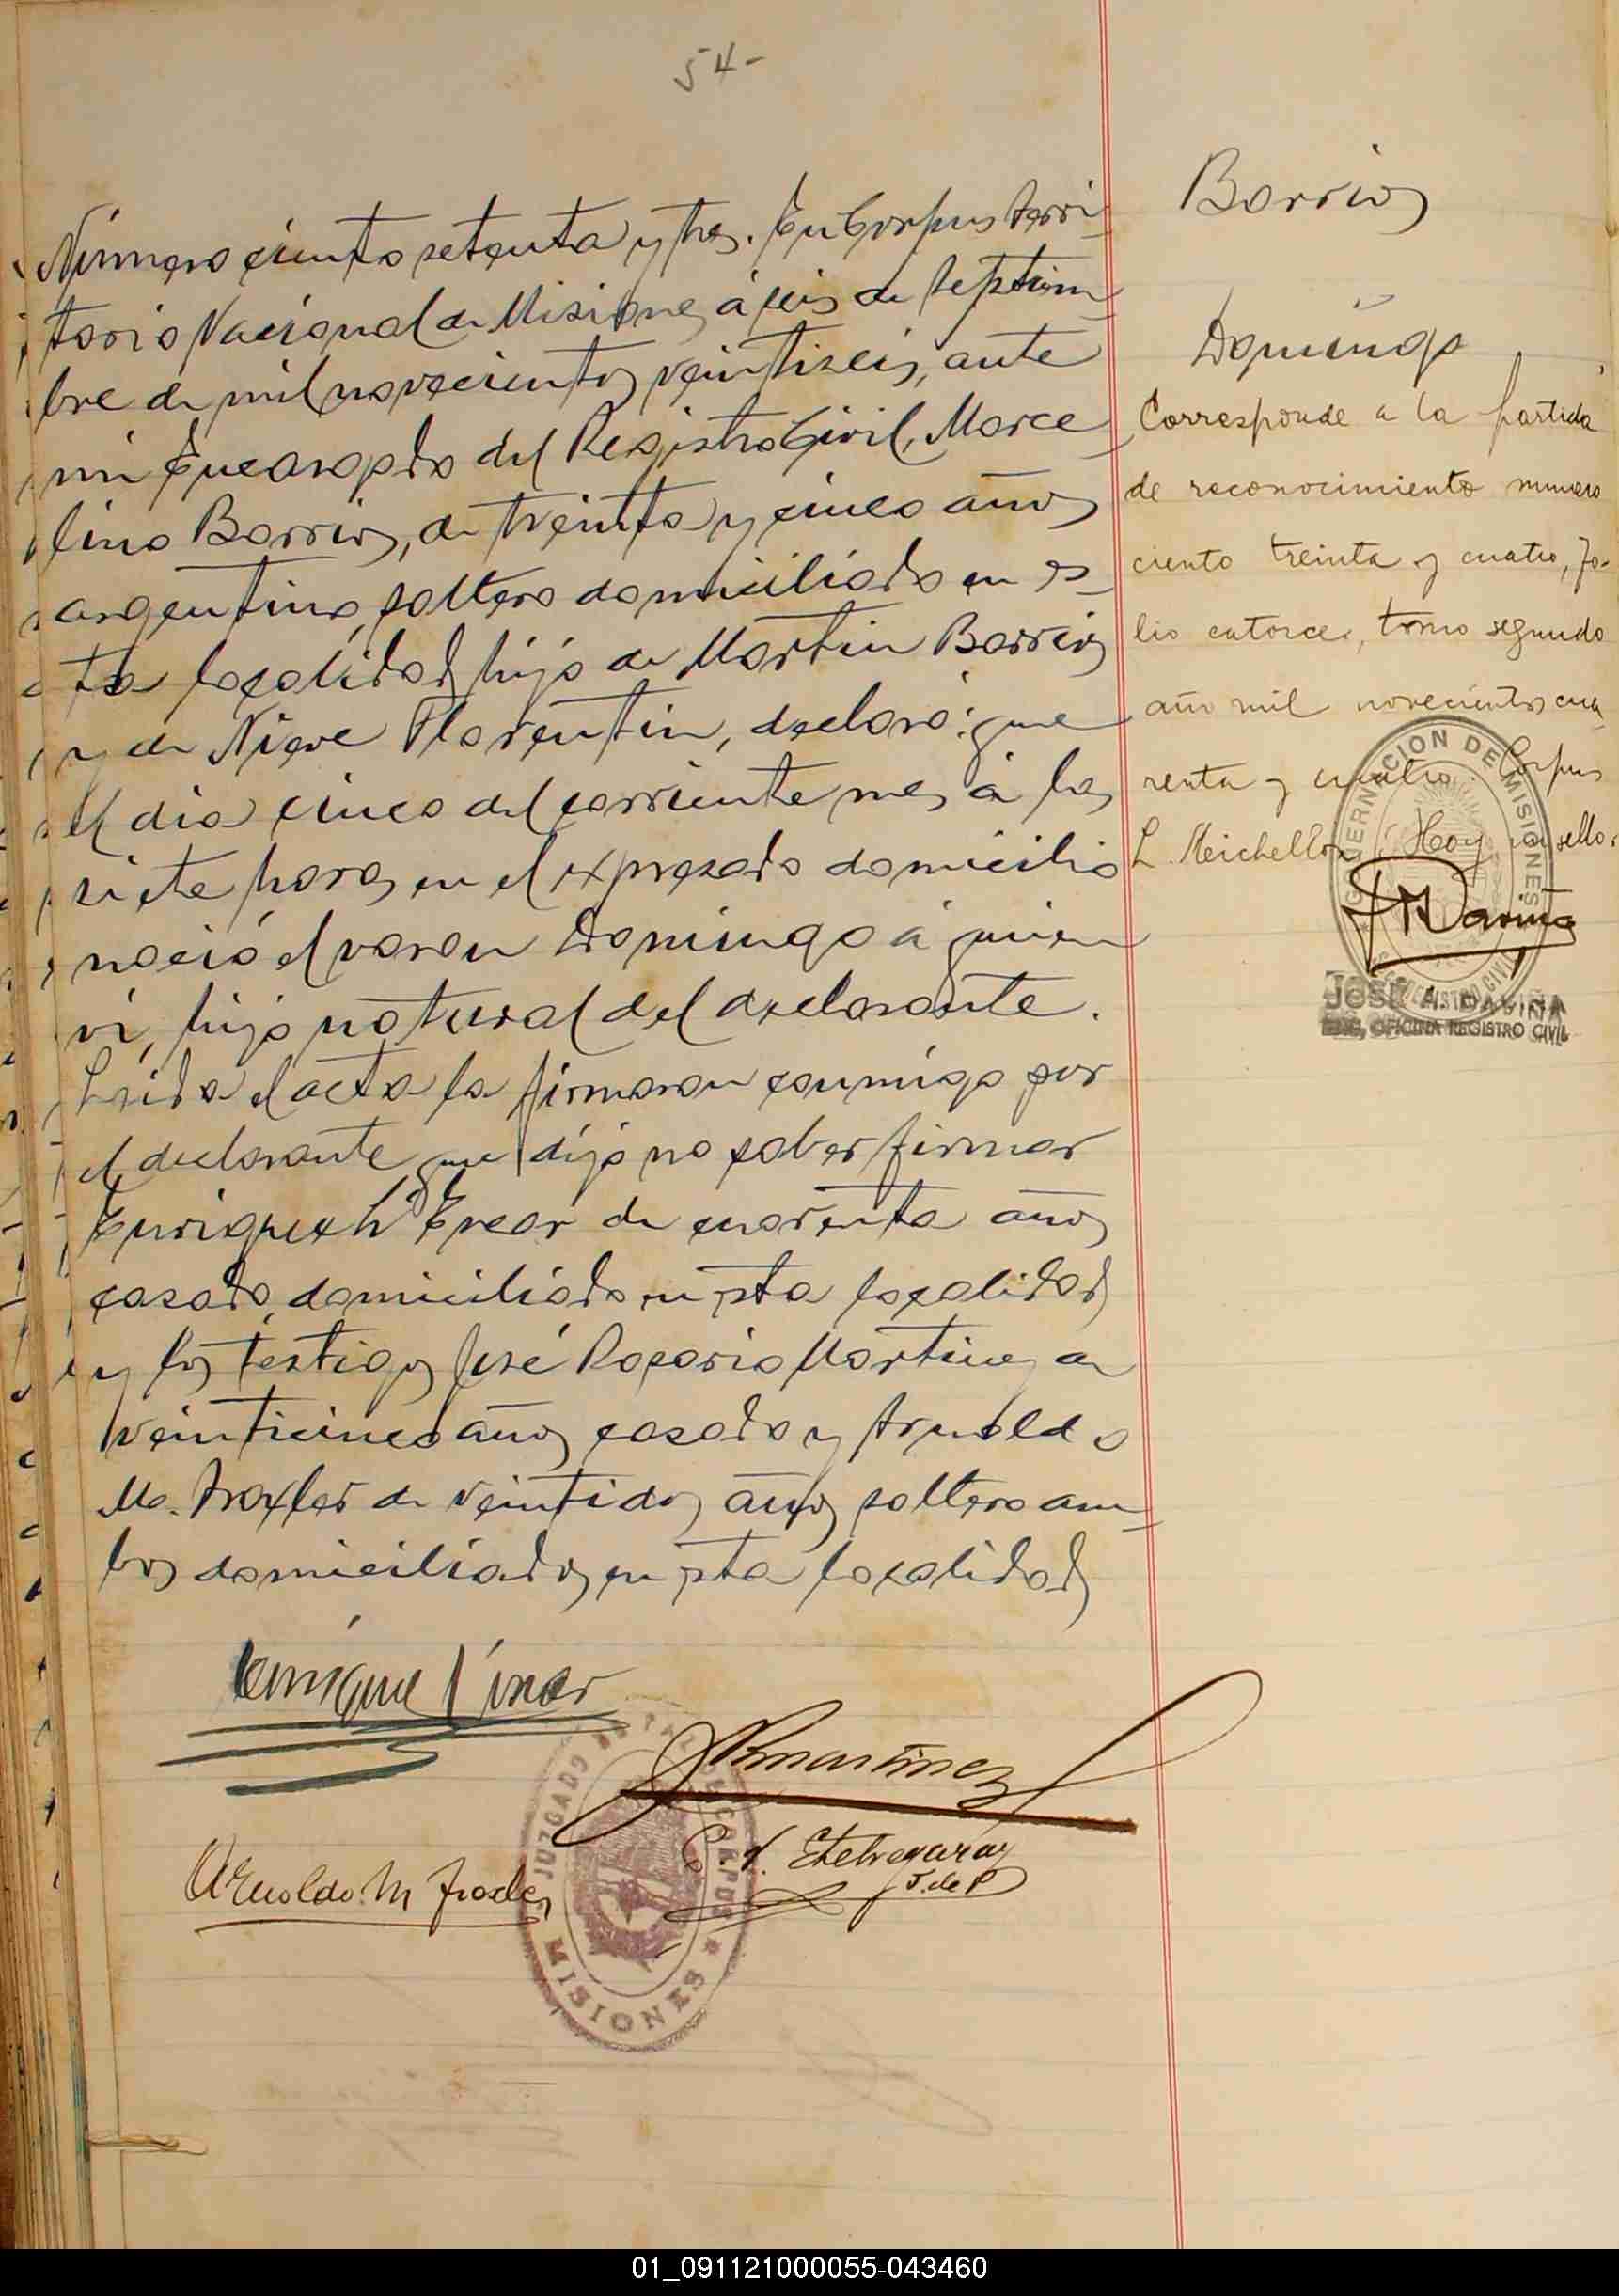 54-
Número ciento setenta y tres. En Corpus Terri-
torio Nacional de Misiones, á seis de Septiem-
bre de mil novecientos veintiseis, ante
mi Encargado del Registro Civil, Marce
lino Barrios, de treinta y cinco años
argentino, soltero domiciliado en es-
ta localidad hijo de Martin Barrios
y de Nieve Florentin, declaró: que
el dia cinco del corriente mes á las
siete horas en el expresado domicilio
nació el varon Domingo á quien
vi, hijo natural del declarante.
Leida el acta la firmaron conmigo por
el declarante que dijo no saber firmar
Enrique de cuarenta años
casado, domiciliado en esta localidad
y los testigos José Rosario Martinez de
veinticinco años casado y Arnoldo
M. de veintidos años soltero am-
bos domiciliados en esta localidad
Enrique
JRMartinez
Arnoldo M
E. V. Etchegaray
J. de P
JUZGADO DE PAZ
MISIONES
Barrios
Domingo
Corresponde a la partida
de reconocimiento numero
ciento treinta y cuatro, fo-
lio catorce, tomo segundo
año mil novecientos cua
renta y cuatro. Corpus
L. Hoy sello.
GOBERNACION DE MISIONES
REGISTRO CIVIL
JOSE A. DAVIÑA
ENC. OFICINA REGISTRO CIVIL
01_091121000055-043460